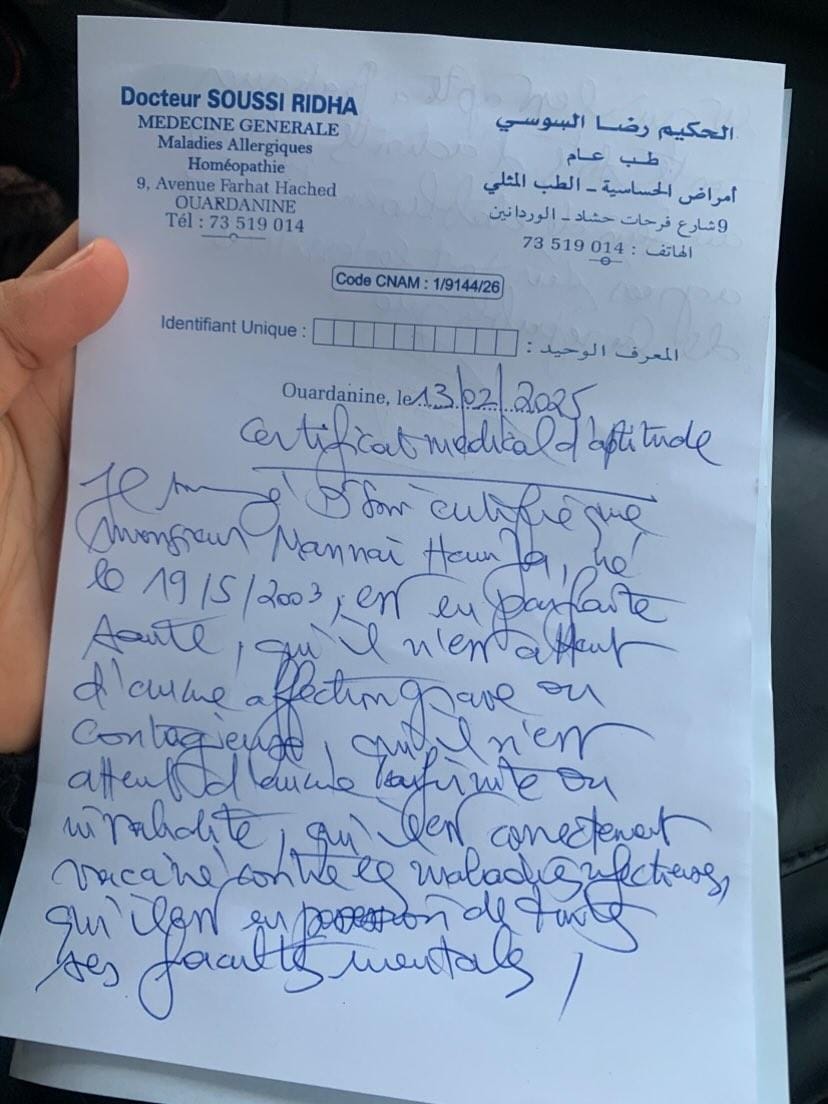 Docteur SOUSSI RIDHA
MEDECINE GENERALE
Maladies Allergiques
Homéopathie
9, Avenue Farhat Hached
OUARDANINE
Tél : 73 519 014
الحكيم رضا السوسي
طب عام
أمراض الحساسية - الطب المثلي
9 شارع فرحات حشاد - الوردانين
الهاتف : 014 519 73
Code CNAM : 1/9144/26
Identifiant Unique : المعرف الوحيد :
Ouardanine, le 13/02/2025
Certificat médical d'aptitude
Je certifie que
Monsieur Mannai Hamza, né
le 19/5/2003, est en parfaite
santé, qu'il n'est atteint
d'aucune affection grave ou
contagieuse, qu'il n'est
atteint d'aucune infirmité ou
invalidité, qu'il est correctement
vacciné contre les maladies infectieuses,
qu'il est en possession de toutes
ses facultés mentales,